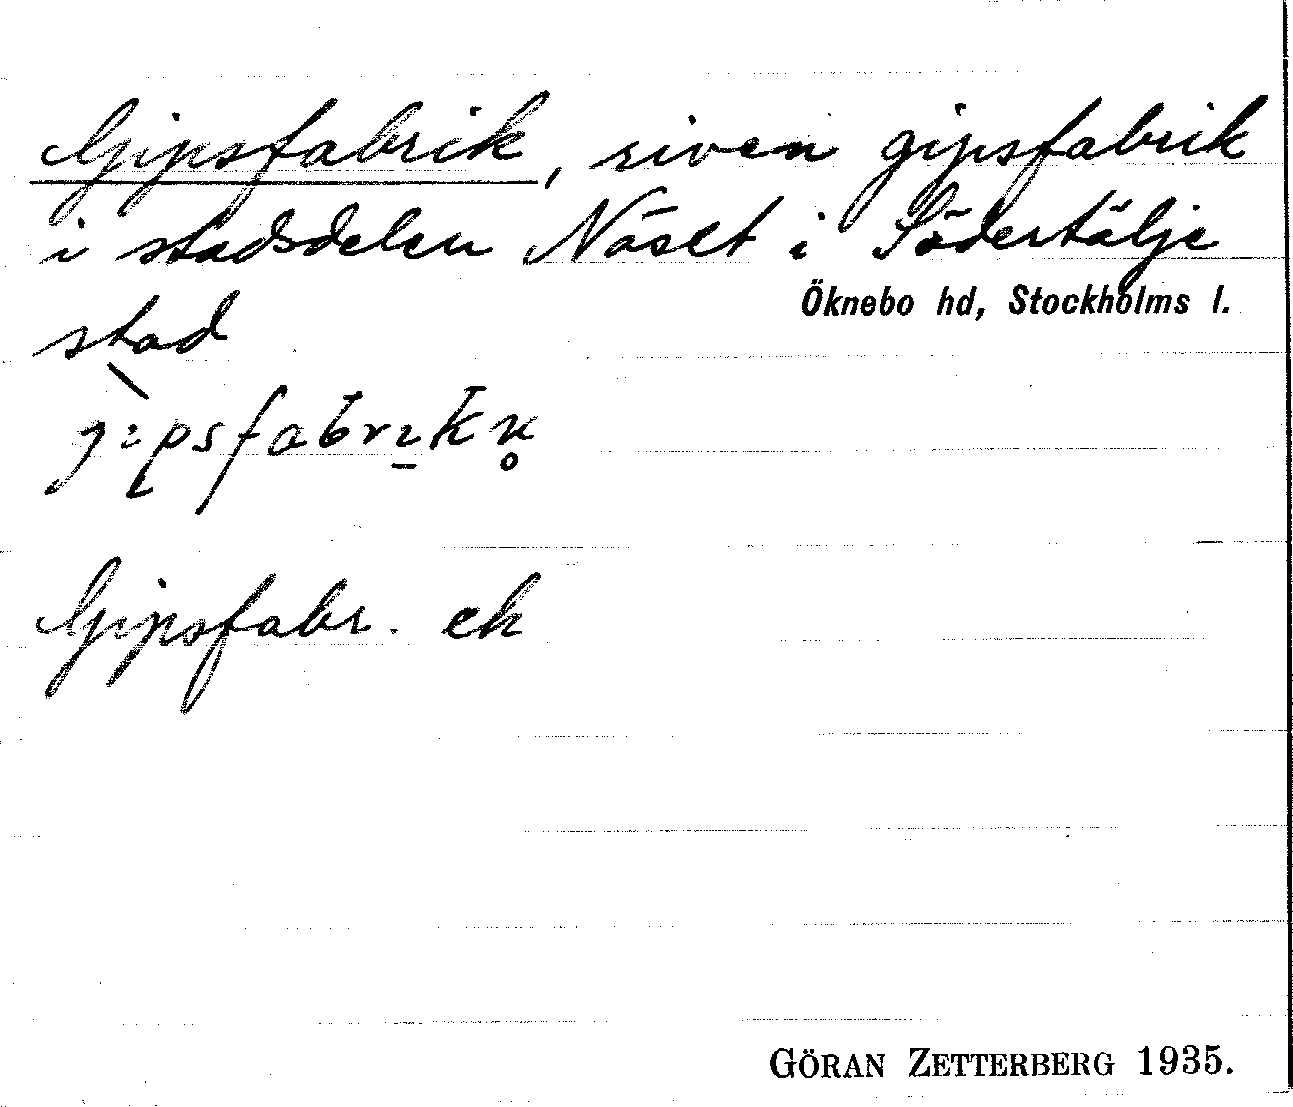 Gipsfabrik, riven gipsfabrik
i stadsdelen Näset i Södertälje
stad
Öknebo hd, Stockholms l.
Gipsfabr. ek
GÖRAN ZETTERBERG 1935.